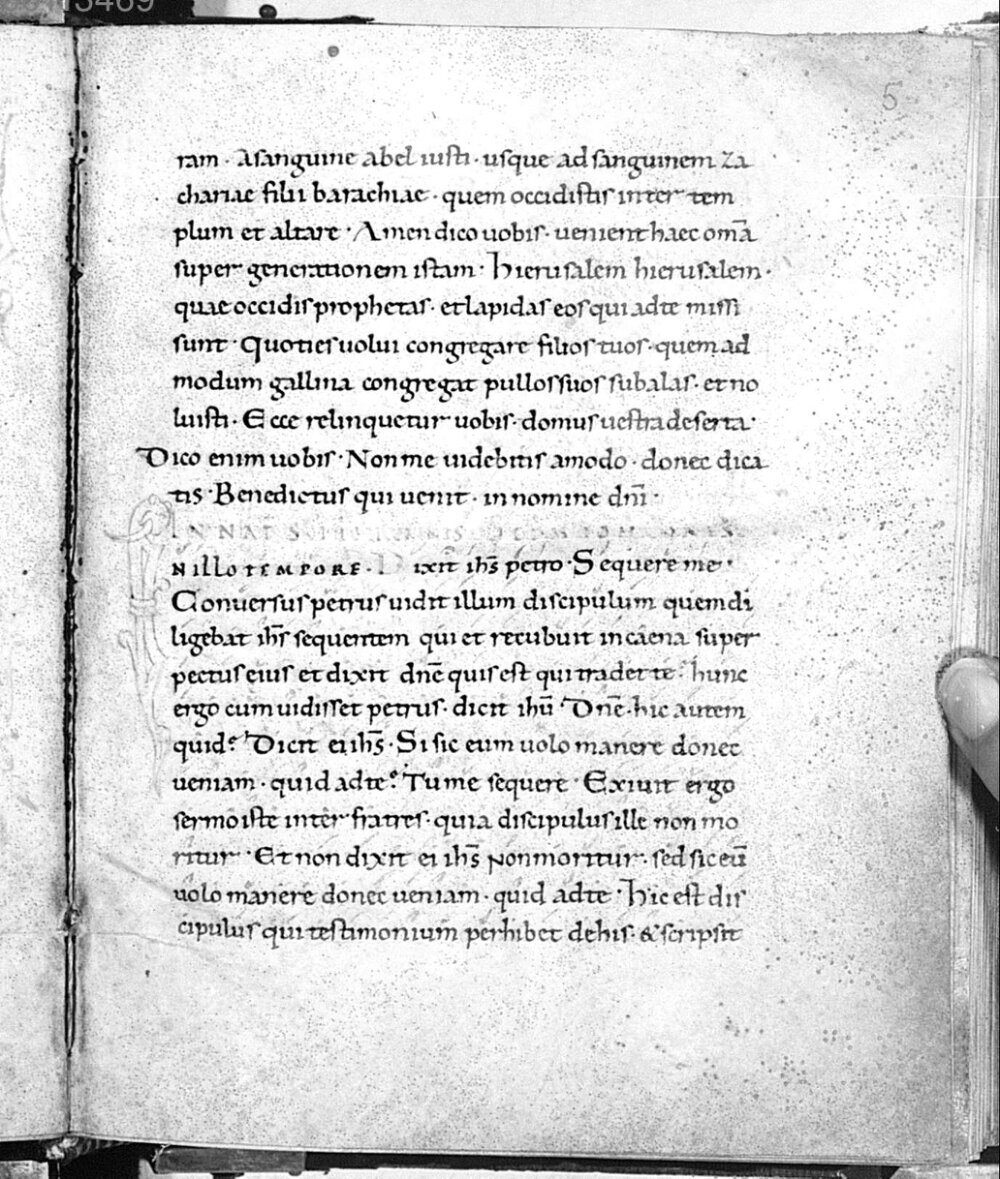 13469
5
ram · Asanguine abel iusti · usque ad sanguinem Za
chariae filii barachiae · quem occidistis inter tem
plum et altare · Amen dico uobis · uenient haec om̄a
super generationem istam · Hierusalem hierusalem ·
quae occidis prophetas · et lapidas eos qui ad te missi
sunt · Quoties uolui congregare filios tuos · quem ad
modum gallina congregat pullos suos sub alas · et no
luisti · Ecce relinquetur uobis · domus uestra deserta ·
Dico enim uobis · Non me uidebitis amodo · donec dica
tis · Benedictus qui uenit · in nomine dn̄i ·
IN NAT̄ S
IN ILLO TEMPORE · Dixit ih̄s petro · Sequere me ·
Conuersus petrus uidit illum discipulum quem di
ligebat ih̄s sequentem qui et recubuit in caena super
pectus eius et dixit dn̄e quis est qui tradet te · hunc
ergo cum uidisset petrus · dicit ih̄u · Dn̄e · hic autem
quid? Dicit ei ih̄s · Si sic eum uolo manere donec
ueniam · quid ad te? Tu me sequere · Exiuit ergo
sermo iste inter fratres · quia discipulus ille non mo
ritur · Et non dixit ei ih̄s non moritur · sed sic eū
uolo manere donec ueniam · quid ad te · Hic est dis
cipulus qui testimonium perhibet de his · & scripsit